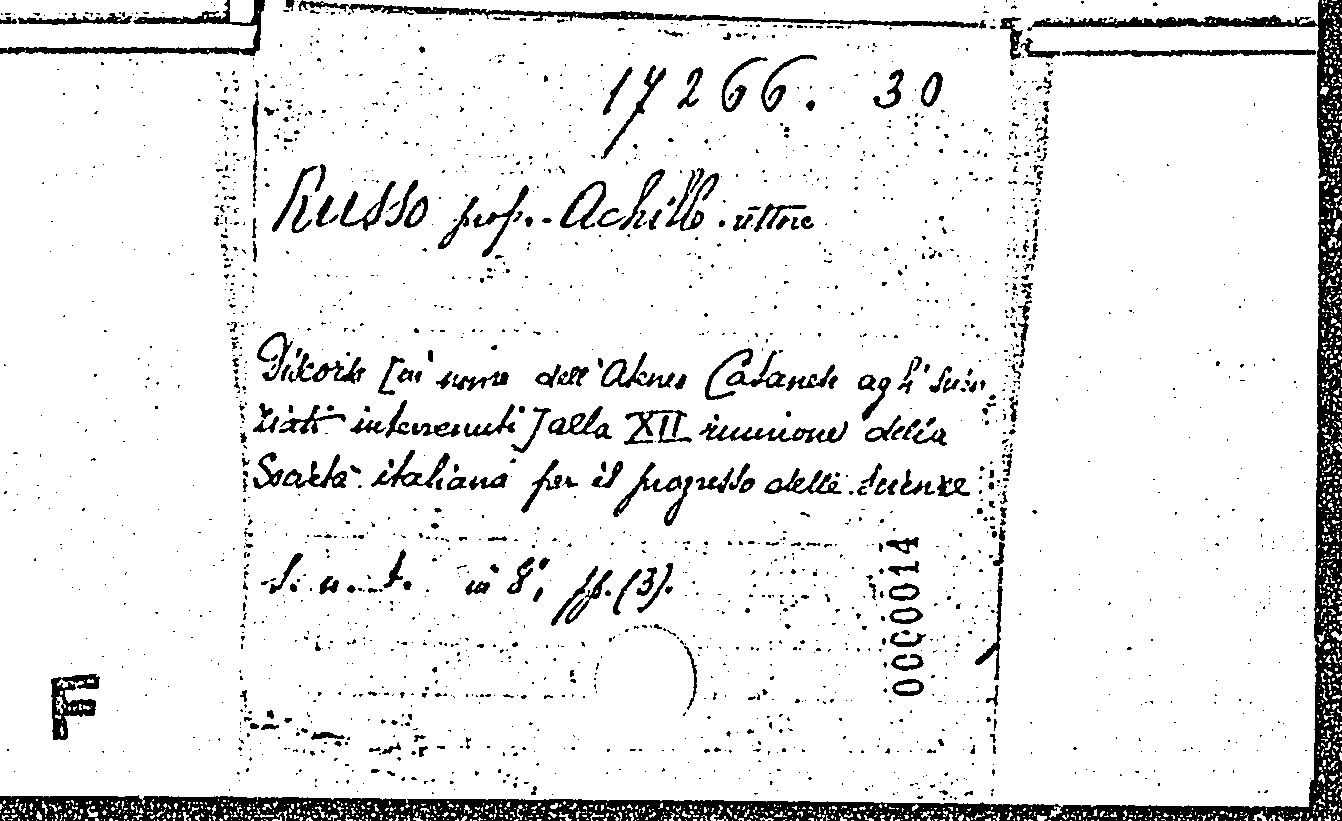 17266. 30
Russo prof. Achille. rettore
Discorso [in nome dell'Ateneo Catanese agl'scien-
ziati intervenuti] alla XII riunione della
Società italiana per il progresso delle scienze
s. n. t. in 8°, pp. (3).
0000014
F